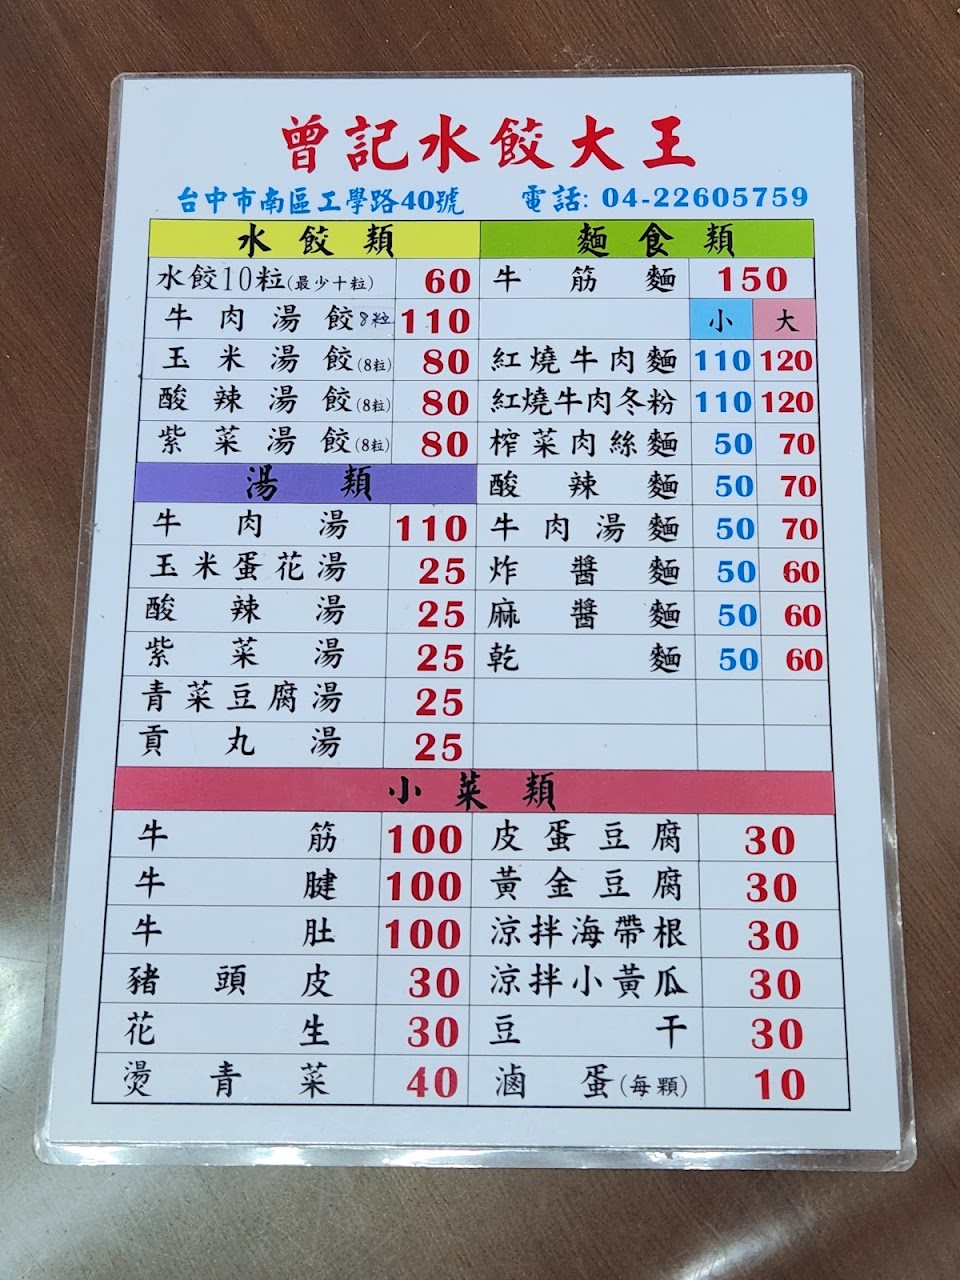 曾記水餃大王
台中市南區工學路40號 電話: 04-22605759
水餃類
水餃10粒(最少十粒) 60
牛肉湯餃8粒 110
玉米湯餃(8粒) 80
酸辣湯餃(8粒) 80
紫菜湯餃(8粒) 80
湯類
牛肉湯 110
玉米蛋花湯 25
酸辣湯 25
紫菜湯 25
青菜豆腐湯 25
貢丸湯 25
麵食類
牛筋麵 150
小 大
紅燒牛肉麵 110 120
紅燒牛肉冬粉 110 120
榨菜肉絲麵 50 70
酸辣麵 50 70
牛肉湯麵 50 70
炸醬麵 50 60
麻醬麵 50 60
乾麵 50 60
小菜類
牛筋 100
牛腱 100
牛肚 100
豬頭皮 30
花生 30
燙青菜 40
皮蛋豆腐 30
黃金豆腐 30
涼拌海帶根 30
涼拌小黃瓜 30
豆干 30
滷蛋(每顆) 10